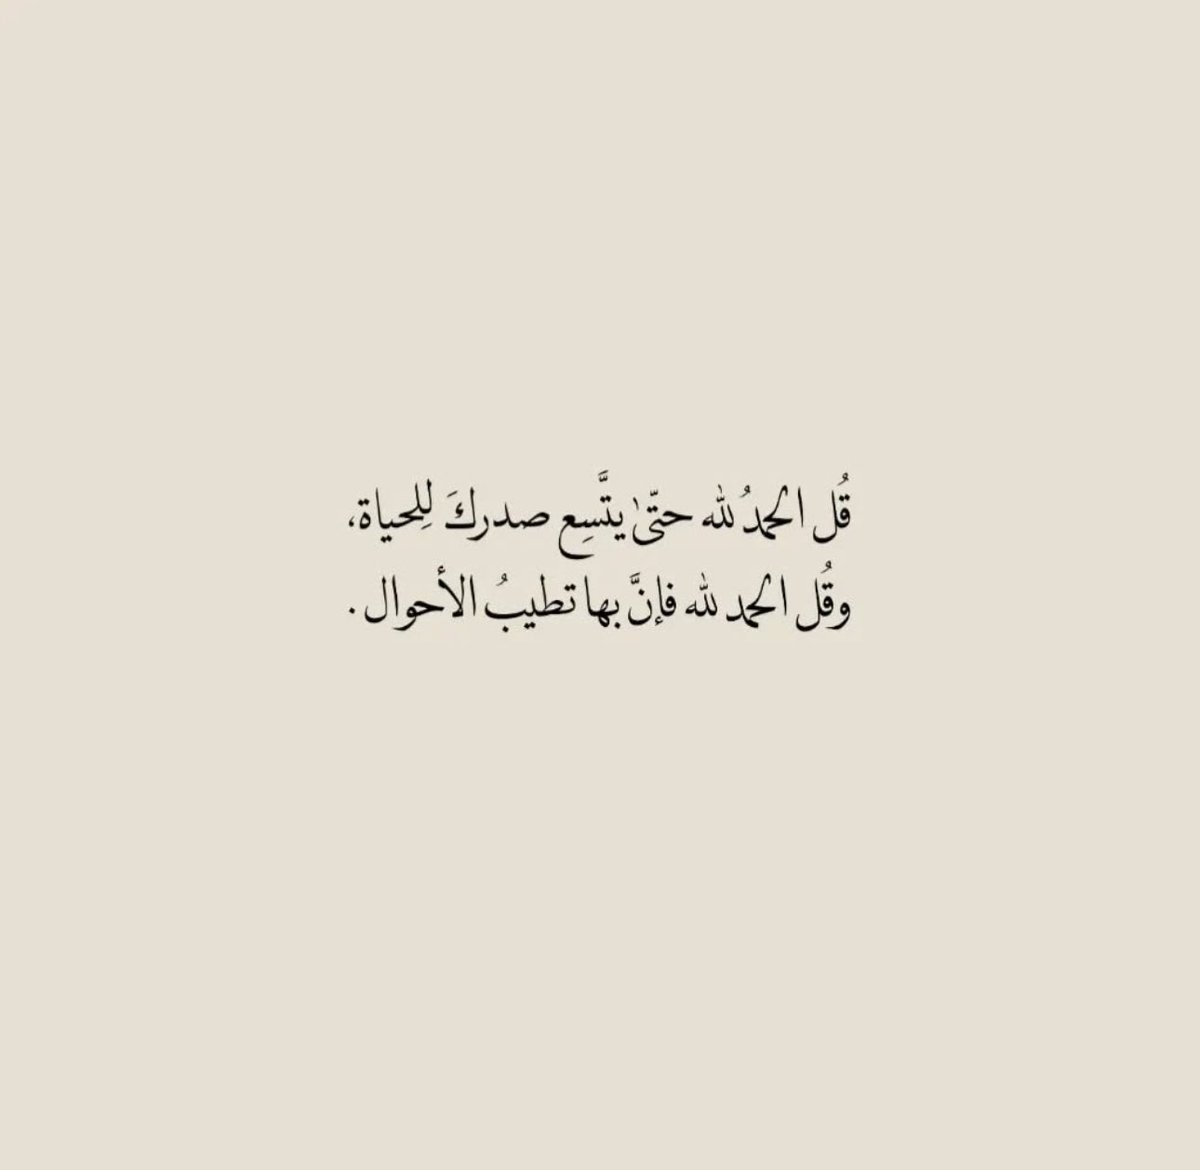 قُل الحمدُ لله حتّىٰ يتَّسِع صدركَ لِلحياة،
وقُل الحمد لله فإنَّ بها تطيبُ الأحوال .